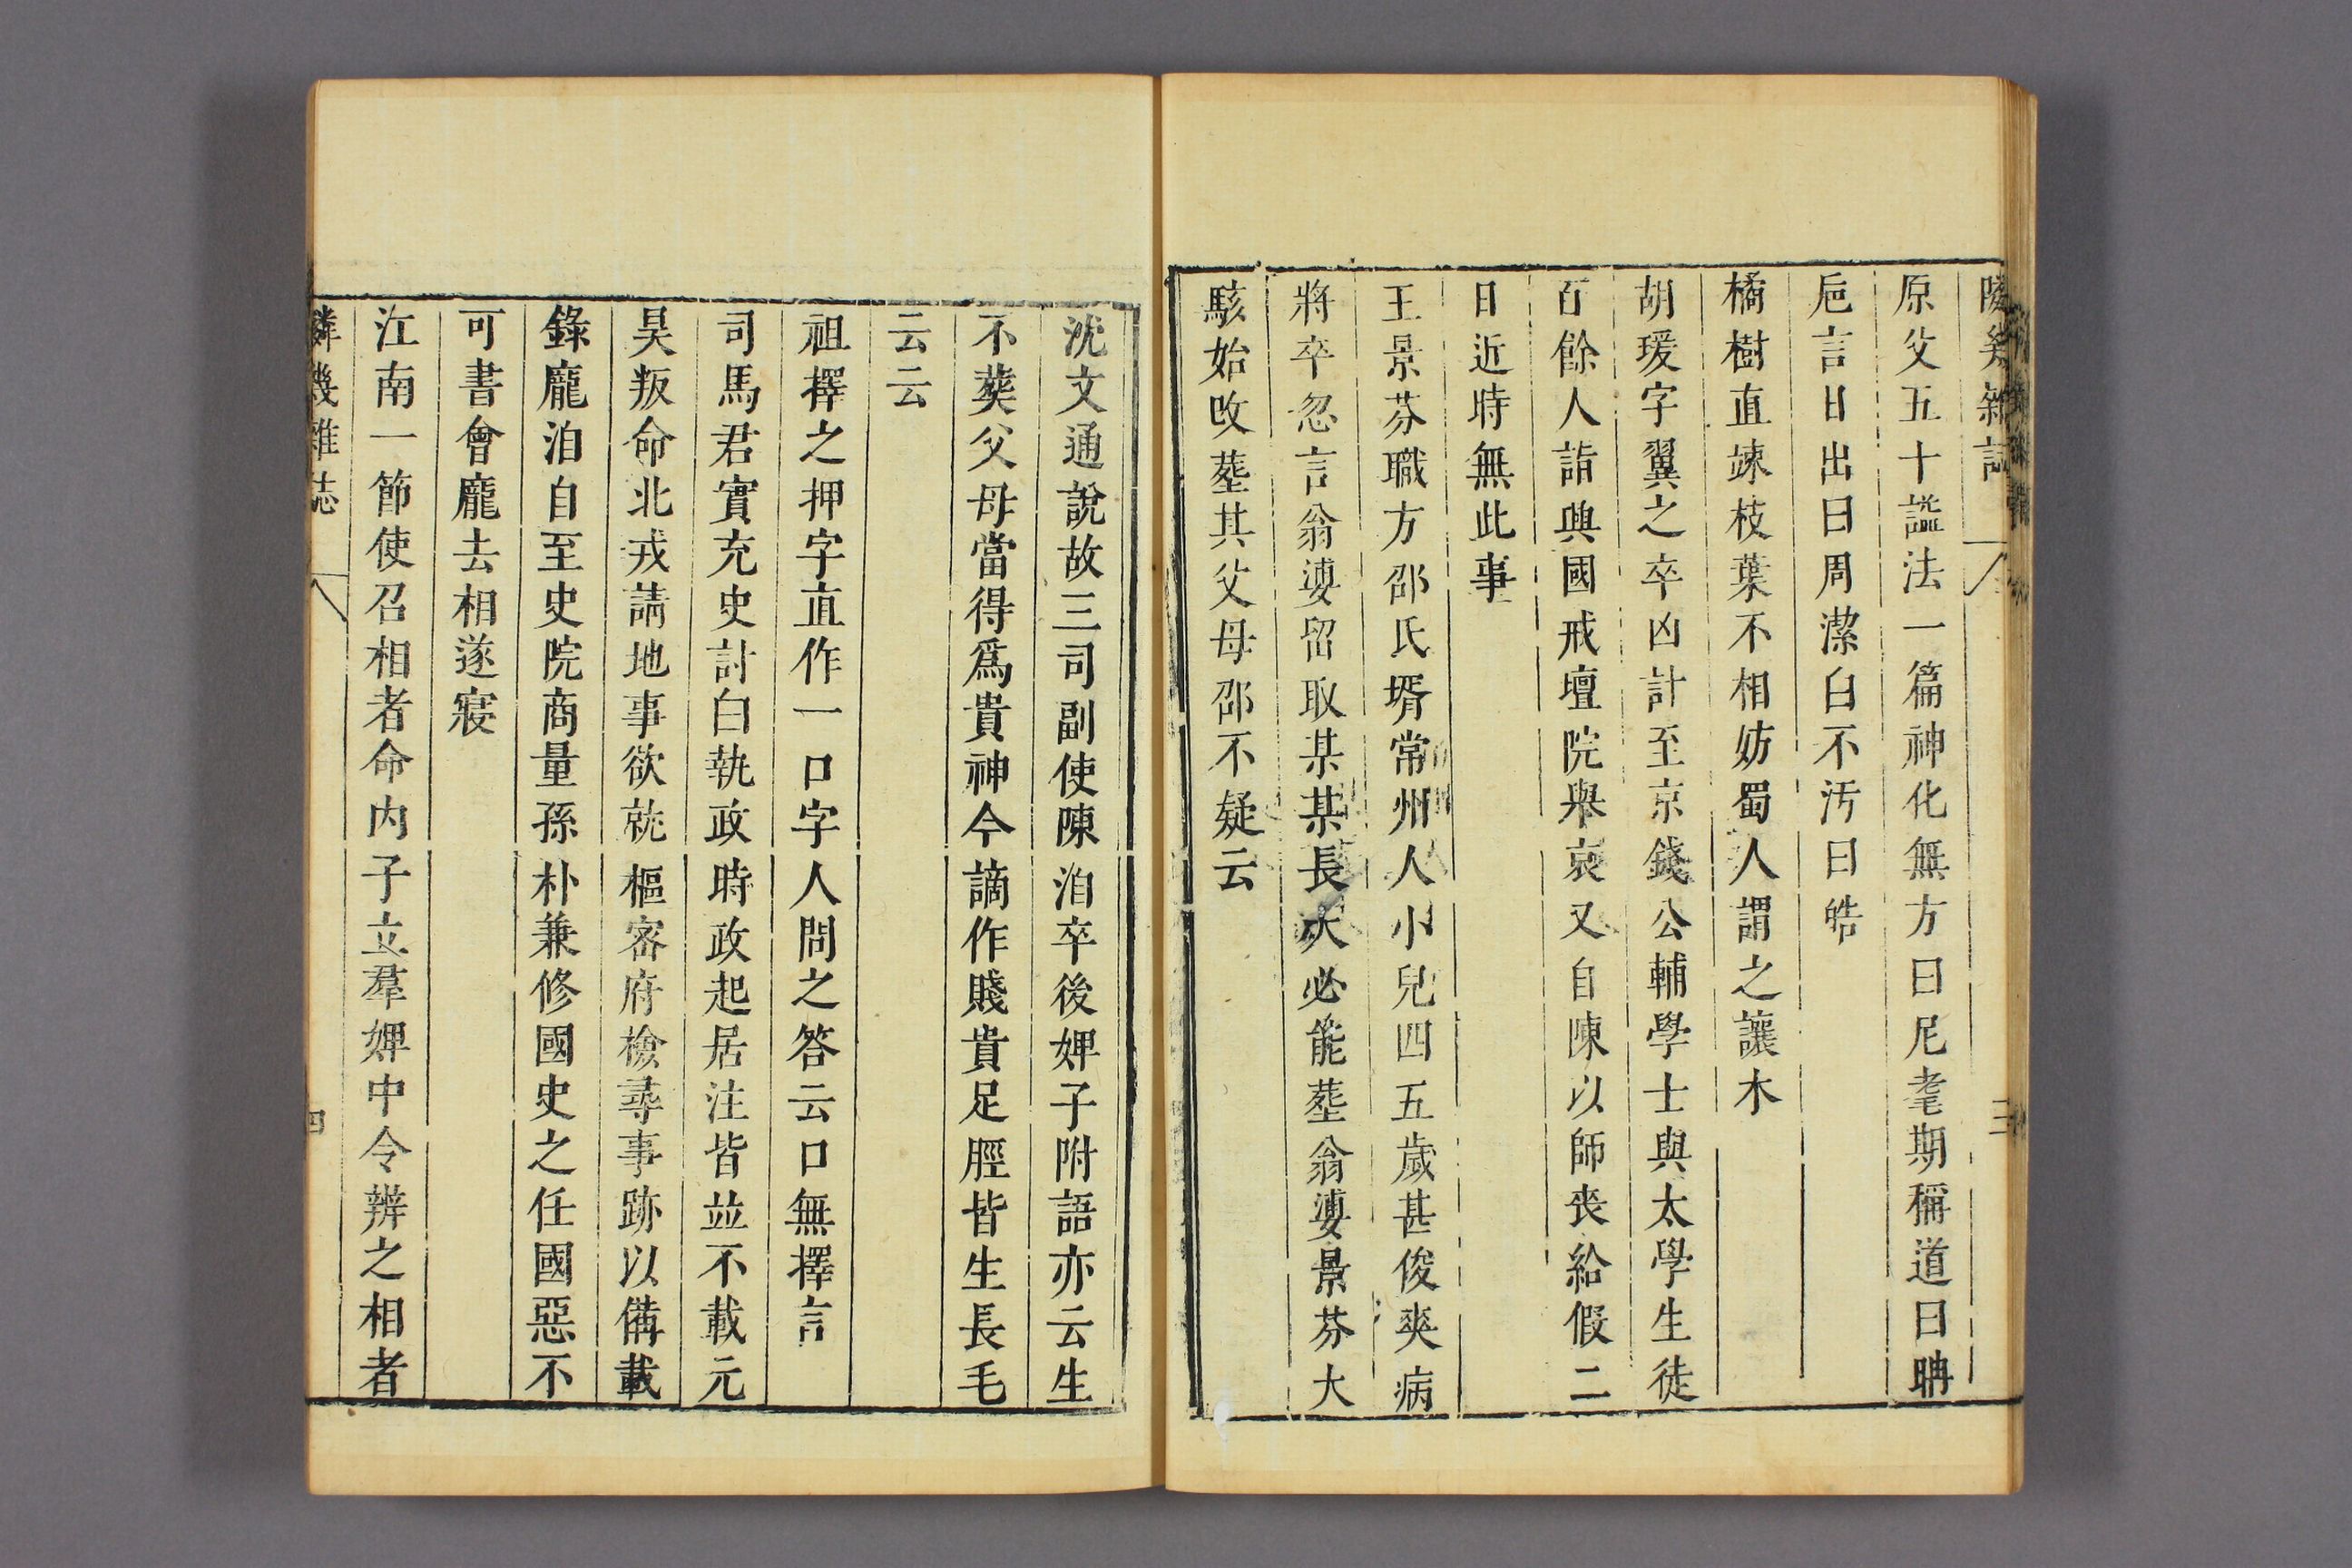 原父五十諡法一篇神化無方曰尼耄期稱道曰聃
巵言日出曰周潔白不汚曰皓
橘樹直竦枝葉不相妨蜀人謂之讓木
胡瑗字翼之卒凶訃至京錢公輔學士與太學生徒
百餘人詣興國戒壇院舉哀又自陳以師喪給假二
日近時無此事
王景芬職方邵氏壻常州人小兒四五歲甚俊爽病
將卒忽言翁婆留取某某長大必能塟翁婆景芬大
駭始改塟其父母邵不疑云
沈文通說故三司副使陳洎卒後婢子附語亦云生
不葬父母當得爲貴神今謫作賤貴足脛皆生長毛
云云
祖擇之押字直作一口字人問之答云口無擇言
司馬君實充史討白執政時政起居注皆並不載元
昊叛命北戎請地事欲就樞密府檢尋事跡以備載
錄龐洎自至史院商量孫朴兼修國史之任國惡不
可書會龐去相遂寢
江南一節使召相者命内子立羣婢中令辨之相者
隣幾雜誌
四